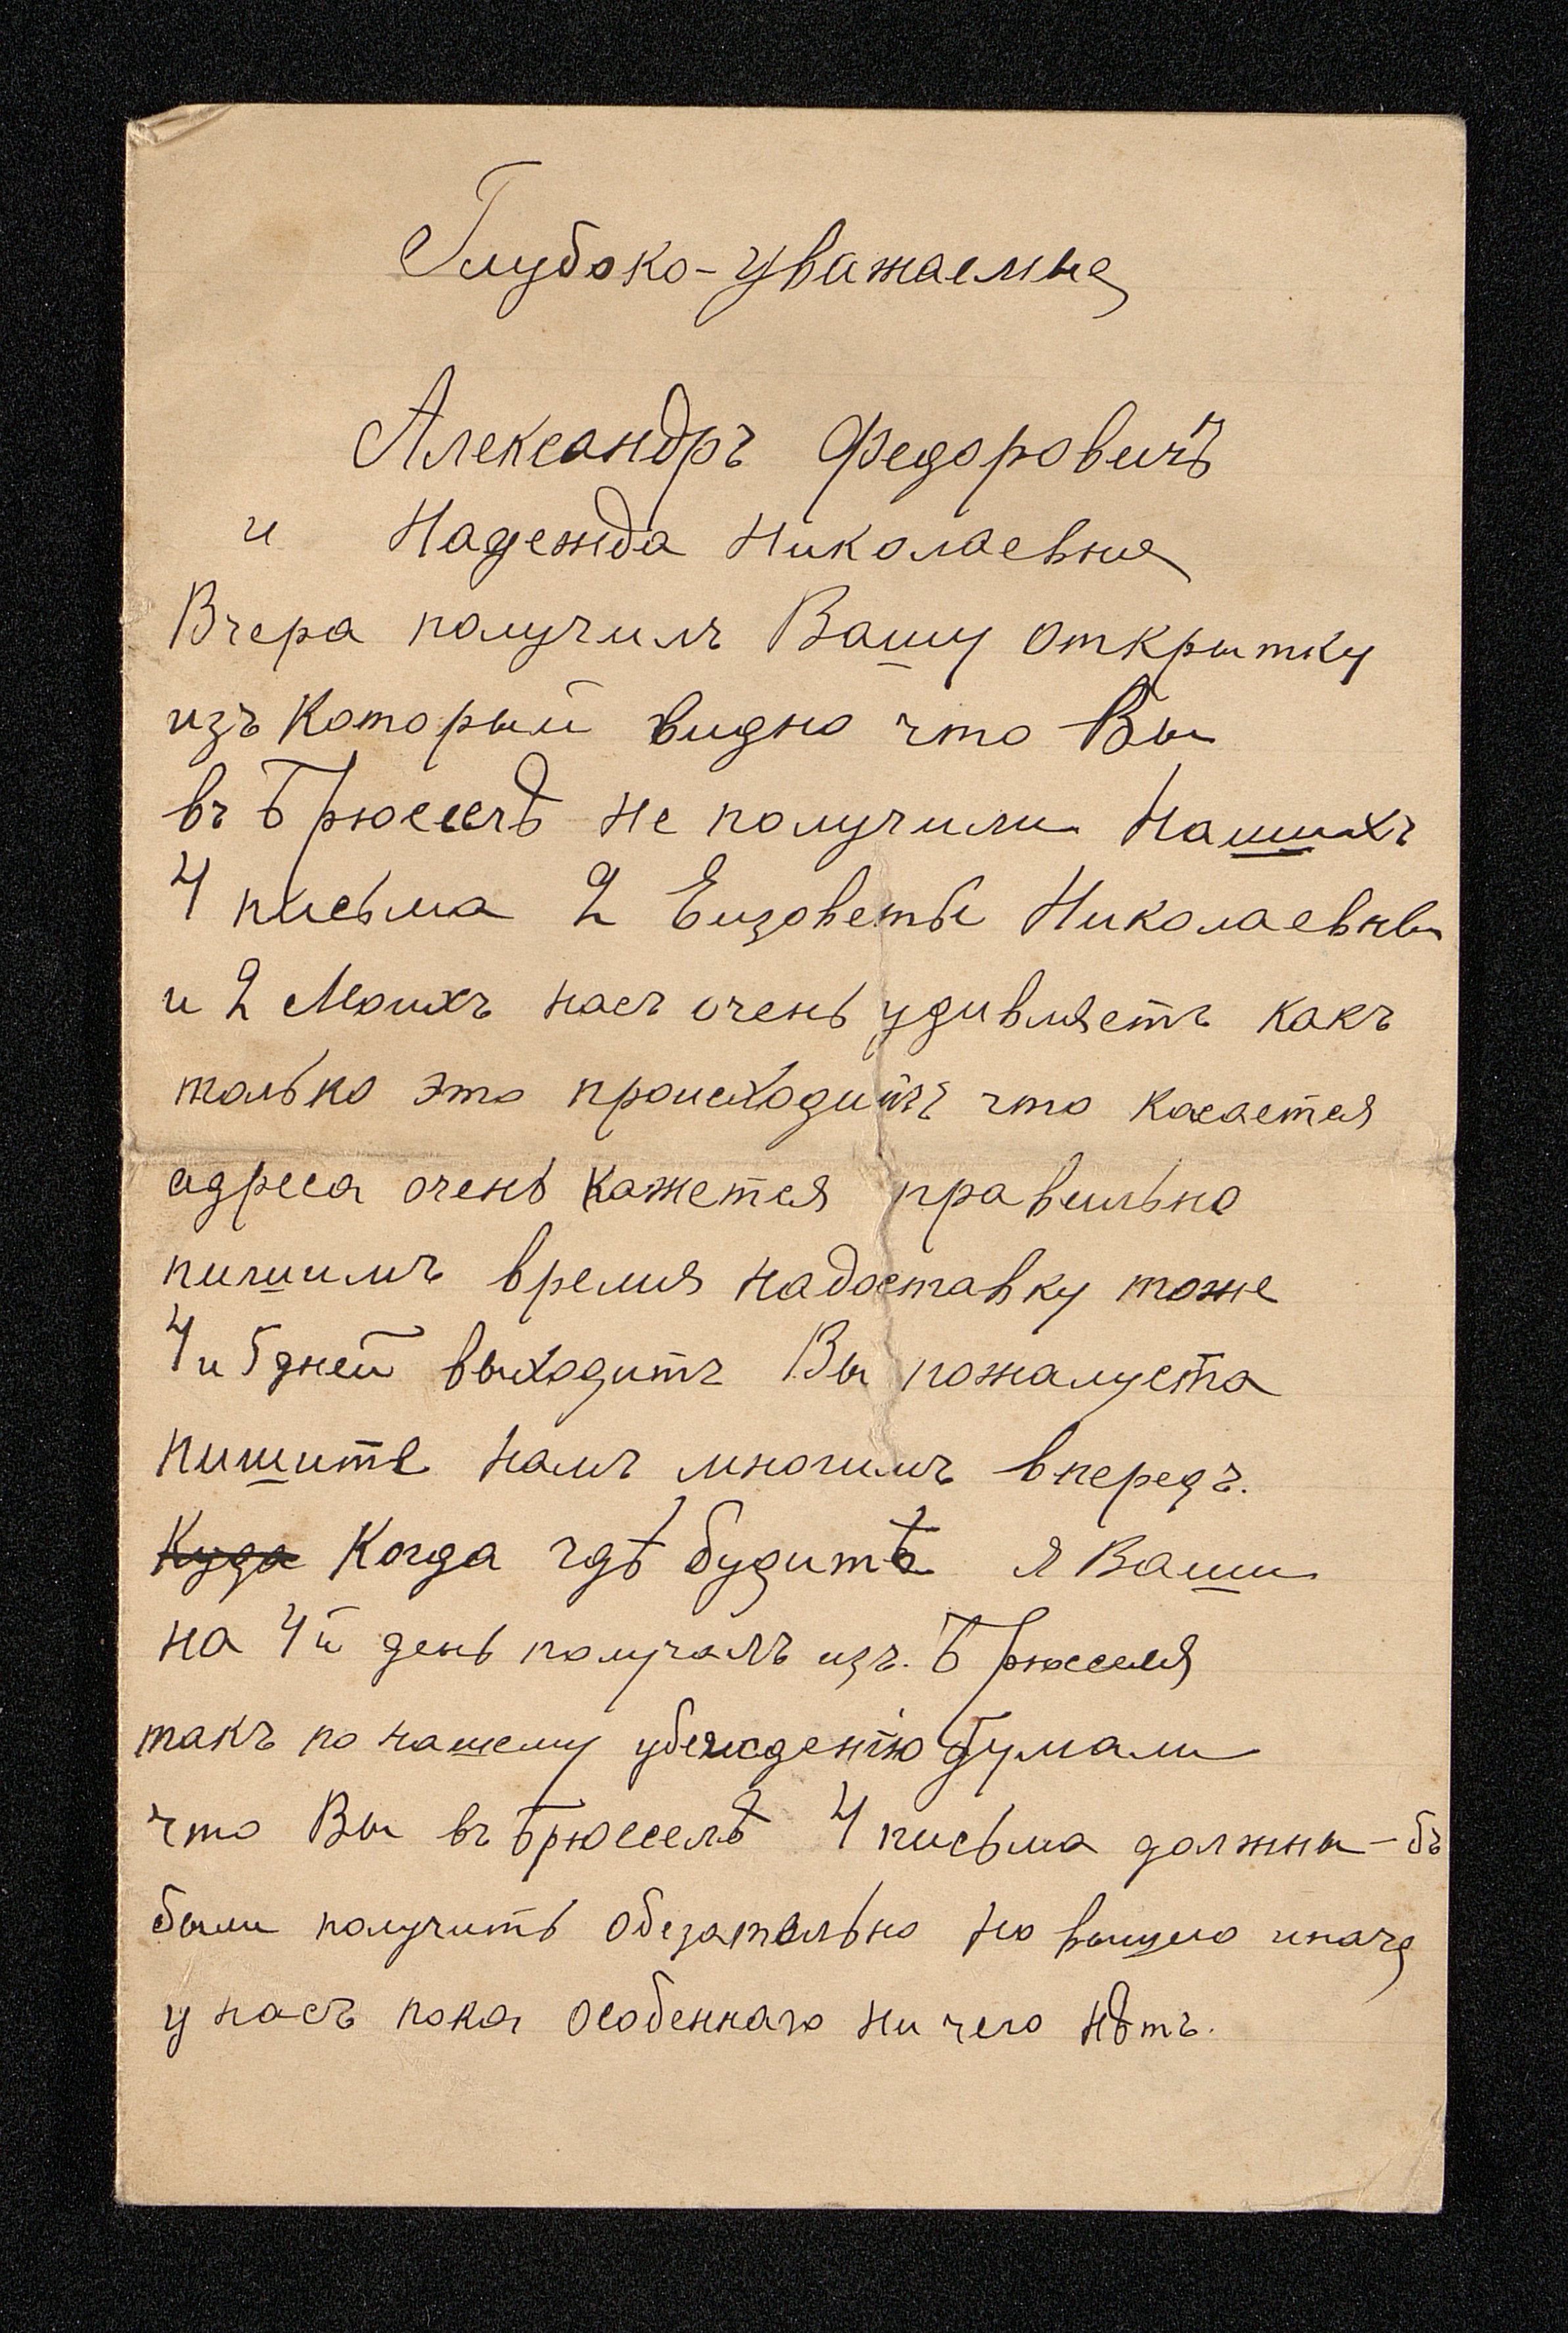 Глубоко-уважаемые
Александръ Федоровичъ
и Надежда Николаевна
Вчера получилъ Вашу открытку
изъ который видно что Вы
въ Брюсселѣ не получили нашихъ
4 письма 2 Елизоветы Николаевны
и 2 Моихъ насъ очень удивляетъ какъ
только это происходитъ что касается
адреса очень кажется правильно
пишимъ время на доставку тоже
4 и 5 дней выходитъ Вы пожалуста
пишите намъ многимъ впередъ.
Куда Когда гдѣ будитѣ я Ваши
на 4й день получалъ изъ. Брюсселя
такъ по нашему убежденію думали
что Вы въ Брюсселѣ 4 письма должны-бъ
были получить обезательно но вышло иначе
у насъ пока особеннаго ни чего нѣтъ.